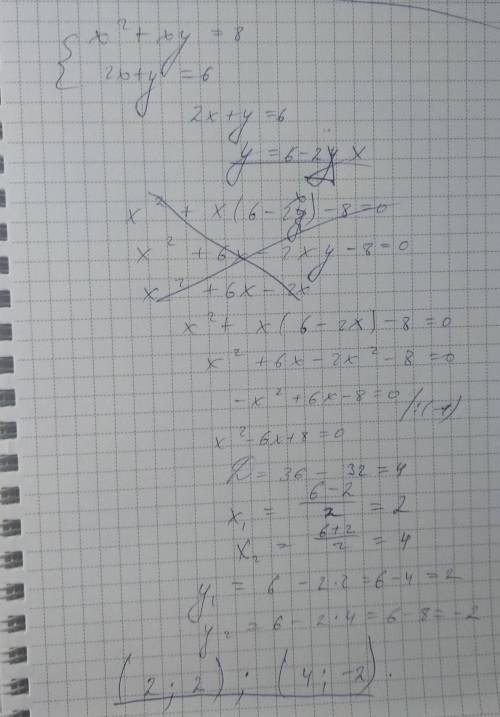 { x² + xy = 8
2x+y = 6
2x+y = 6
y = 6 - 2x
x² + x(6 - 2x) - 8 = 0
x² + 6x - 2xy - 8 = 0
x² + 6x - 2x
x² + x(6 - 2x) - 8 = 0
x² + 6x - 2x² - 8 = 0
-x² + 6x - 8 = 0 /:(-1)
x² - 6x + 8 = 0
D = 36 - 32 = 4
x₁ = (6-2)/2 = 2
x₂ = (6+2)/2 = 4
y₁ = 6 - 2·2 = 6 - 4 = 2
y₂ = 6 - 2·4 = 6 - 8 = -2
(2; 2); (4; -2).